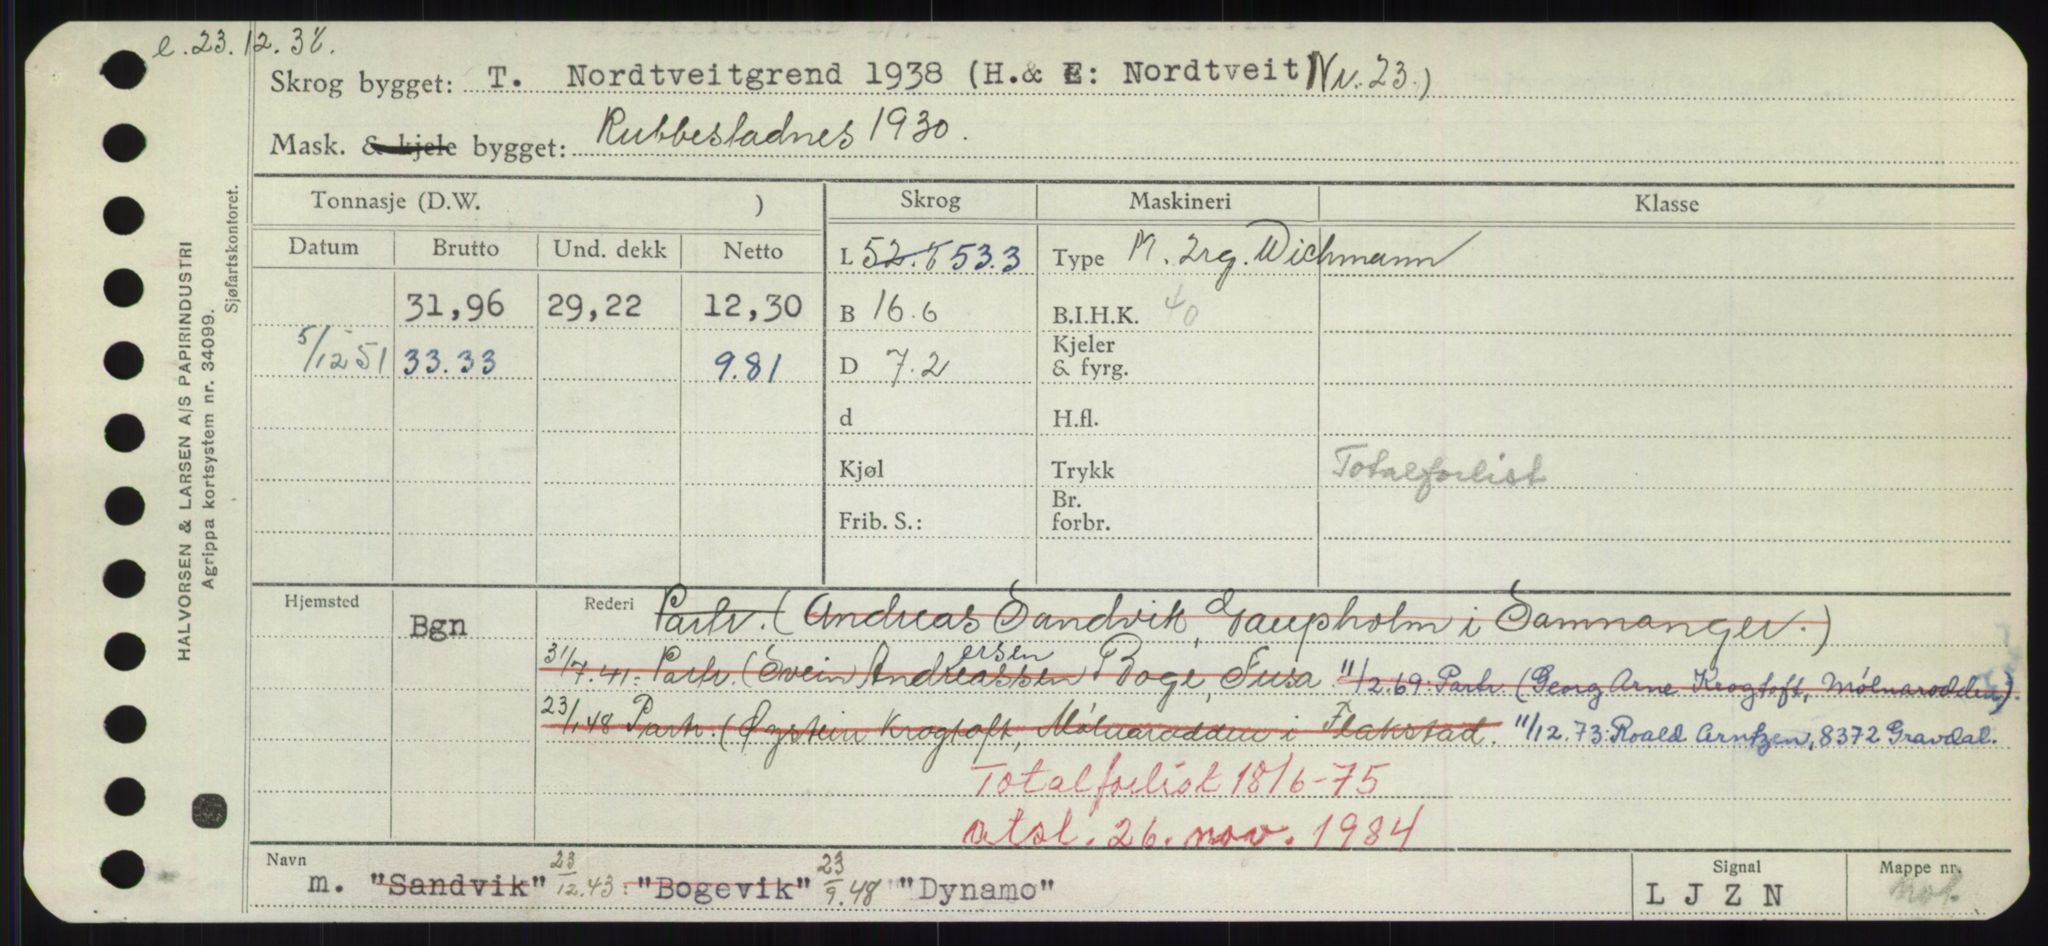 e.23.12.38.
Skrog bygget: T. Nordtveitgrend 1938 (H.& E: Nordtveit Nr. 23.)
Mask. & kjele bygget: Rubbestadnes 1930.
HALVORSEN & LARSEN A/S PAPIRINDUSTRI
Agrippa kortsystem nr. 34099.
Sjøfartskontoret.
Tonnasje (D.W. ) Skrog Maskineri Klasse
Datum Brutto Und. dekk Netto L 52.8 53.3 Type M. 2rg. Wichmann
31,96 29,22 12,30 B 16.6 B.I.H.K. 40
5/12 51 33.33 9.81 D 7.2 Kjeler & fyrg.
d H.fl.
Kjøl Trykk Totalforlist
Frib. S.: Br. forbr.
Hjemsted Bgn Rederi Partr. (Andreas Sandvik, Gaupholm i Samnanger.)
31/7.41: Partr. (Svein Andreassen ersen Boge, Fusa. 11/2.69: Partr. (Georg Arne Krogtoft, Mølnarodden).
23/1.48 Partr. (Øystein Krogtoft, Mølnarodden i Flakstad. 11/12.73: Roald Arntzen, 8372 Gravdal.
Totalforlist 18/6-75
utsl. 26. nov. 1984
Navn Signal Mappe nr.
m. "Sandvik" 23/12.43: "Bogevik" 23/9.48 "Dynamo" L J Z N